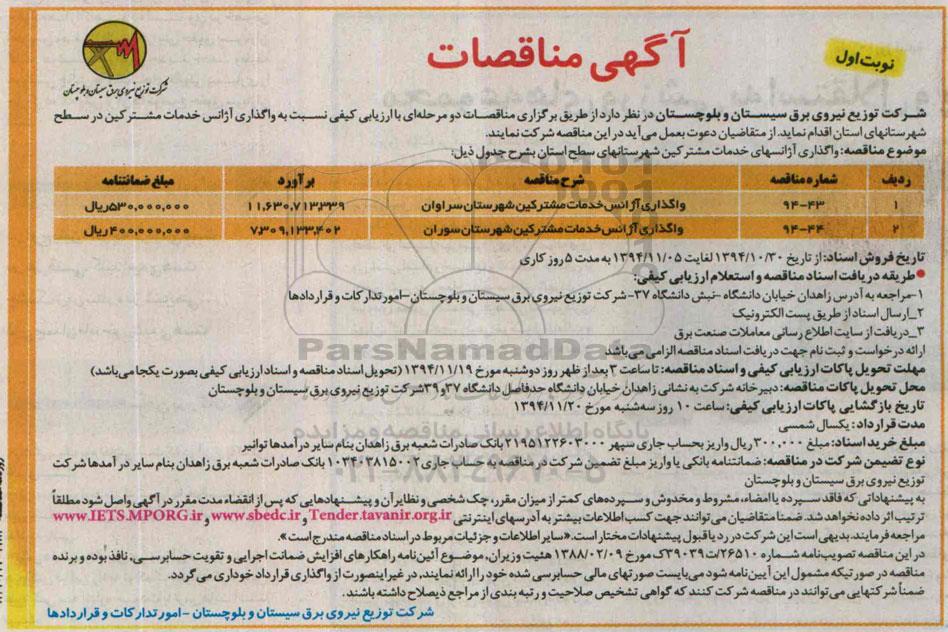 آگهی مناقصات
نوبت اول
شرکت توزیع نیروی برق سیستان و بلوچستان
شرکت توزیع نیروی برق سیستان و بلوچستان در نظر دارد از طریق برگزاری مناقصات دو مرحله‌ای با ارزیابی کیفی نسبت به واگذاری آژانس خدمات مشترکین در سطح
شهرستانهای استان اقدام نماید. از متقاضیان دعوت بعمل می‌آید در این مناقصه شرکت نمایند.
موضوع مناقصه: واگذاری آژانسهای خدمات مشترکین شهرستانهای سطح استان بشرح جدول ذیل:
ردیف شماره مناقصه شرح مناقصه برآورد مبلغ ضمانتنامه
۱ ۹۴-۴۳ واگذاری آژانس خدمات مشترکین شهرستان سراوان ۱۱,۶۳۰,۷۱۳,۳۳۹ ۵۳۰,۰۰۰,۰۰۰ ریال
۲ ۹۴-۴۴ واگذاری آژانس خدمات مشترکین شهرستان سوران ۷,۳۰۹,۱۳۳,۴۰۲ ۴۰۰,۰۰۰,۰۰۰ ریال
تاریخ فروش اسناد: از تاریخ ۱۳۹۴/۱۰/۳۰ لغایت ۱۳۹۴/۱۱/۰۵ به مدت ۵ روز کاری
● طریقه دریافت اسناد مناقصه و استعلام ارزیابی کیفی:
۱-مراجعه به آدرس زاهدان خیابان دانشگاه -نبش دانشگاه ۳۷- شرکت توزیع نیروی برق سیستان و بلوچستان-امور تدارکات و قراردادها
۲_ارسال اسناد از طریق پست الکترونیک
۳_دریافت از سایت اطلاع رسانی معاملات صنعت برق
ارائه درخواست و ثبت نام جهت دریافت اسناد مناقصه الزامی می‌باشد
ParsNamadData
مهلت تحویل پاکات ارزیابی کیفی و اسناد مناقصه: تا ساعت ۳ بعد از ظهر روز دوشنبه مورخ ۱۳۹۴/۱۱/۱۹ (تحویل اسناد مناقصه و اسناد ارزیابی کیفی بصورت یکجا می‌باشد)
محل تحویل پاکات مناقصه: دبیرخانه شرکت به نشانی زاهدان خیابان دانشگاه حدفاصل دانشگاه ۳۷ و ۳۹ شرکت توزیع نیروی برق سیستان و بلوچستان
تاریخ بازگشایی پاکات ارزیابی کیفی: ساعت ۱۰ روز سه‌شنبه مورخ ۱۳۹۴/۱۱/۲۰
مدت قرارداد: یکسال شمسی
پایگاه اطلاع رسانی مناقصه و مزایده
مبلغ خرید اسناد: مبلغ ۳۰۰,۰۰۰ ریال واریز بحساب جاری سپهر ۲۱۹۵۱۲۲۶۰۳۰۰۰ بانک صادرات شعبه برق زاهدان بنام سایر درآمدها توانیر
نوع تضمین شرکت در مناقصه: ضمانتنامه بانکی یا واریز مبلغ تضمین شرکت در مناقصه به حساب جاری ۱۰۳۴۰۳۸۱۵۰۰۲ بانک صادرات شعبه برق زاهدان بنام سایر درآمدها شرکت
توزیع نیروی برق سیستان و بلوچستان
به پیشنهاداتی که فاقد سپرده یا امضاء، مشروط و مخدوش و سپرده‌های کمتر از میزان مقرر، چک شخصی و نظایر آن و پیشنهادهایی که پس از انقضاء مدت مقرر در آگهی واصل شود مطلقاً
ترتیب اثر داده نخواهد شد. ضمناً متقاضیان می‌توانند جهت کسب اطلاعات بیشتر به آدرسهای اینترنتی Tender.tavanir.org.ir و www.sbedc.ir و www.IETS.MPORG.ir
مراجعه فرمایند. بدیهی است این شرکت در رد یا قبول پیشنهادات مختار است. «سایر اطلاعات و جزئیات مربوط در اسناد مناقصه مندرج است».
در این مناقصه تصویب‌نامه شماره ۲۶۵۱۰/ت۳۹۰۳۹ک مورخ ۱۳۸۸/۰۲/۰۹ هیئت وزیران، موضوع آئین‌نامه راهکارهای افزایش ضمانت اجرایی و تقویت حسابرسی، نافذ بوده و برنده
مناقصه در صورتیکه مشمول این آیین‌نامه شود می‌بایست صورتهای مالی حسابرسی شده خود را ارائه نمایند، در غیر اینصورت از واگذاری قرارداد خودداری می‌گردد.
ضمناً شرکتهایی می‌توانند در مناقصه شرکت کنند که گواهی تشخیص صلاحیت و رتبه بندی از مراجع ذیصلاح داشته باشند.
شرکت توزیع نیروی برق سیستان و بلوچستان - امور تدارکات و قراردادها